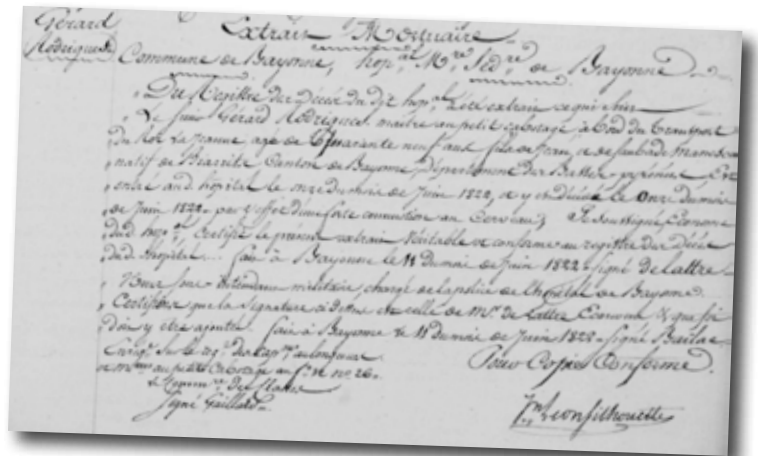 Gérard
Rodriguede
Extrait Mortuaire
Commune de Bayonne, hop.al M.re Séd.re de Bayonne
Du Registre des Décès du dit hop.al a été extrait ce qui suit
Le sieur Gérard Rodrigues maitre au petit cabotage à bord du transport
du Roi La Jeanne, agé de Quarante neuf ans fils de Jean, et de
natif de Biarrits Canton de Bayonne, Département des Basses-pyrénées, Est
entré aud. hôpital le onze du mois de Juin 1822, et y est décédé le Onze du mois
de Juin 1822. par l'effet d'une forte commotion au Cerveau; Je soussigné Econome
dud. hop.al certifie le présent extrait Véritable et conforme au registre des Décès
dud. Hôpital... fait à Bayonne le 11 du mois de Juin 1822 - Signé Delattre
Nous sous-Intendant militaire chargé de la police de l'hopital de Bayonne
Certifions que la Signature ci dessus est celle de Mr. de Lattre Econome & que foi
doit y etre ajoutée. fait à Bayonne le 11 du mois de Juin 1822 - Signé Bailac
Enrig. Sur le reg. des Cap.nes au longcours
et M.tres au petit Cabotage au f.o 12 no. 26.
Pour Copie Conforme
Le des Classes
Signé Gaillard
Leon Silhouette